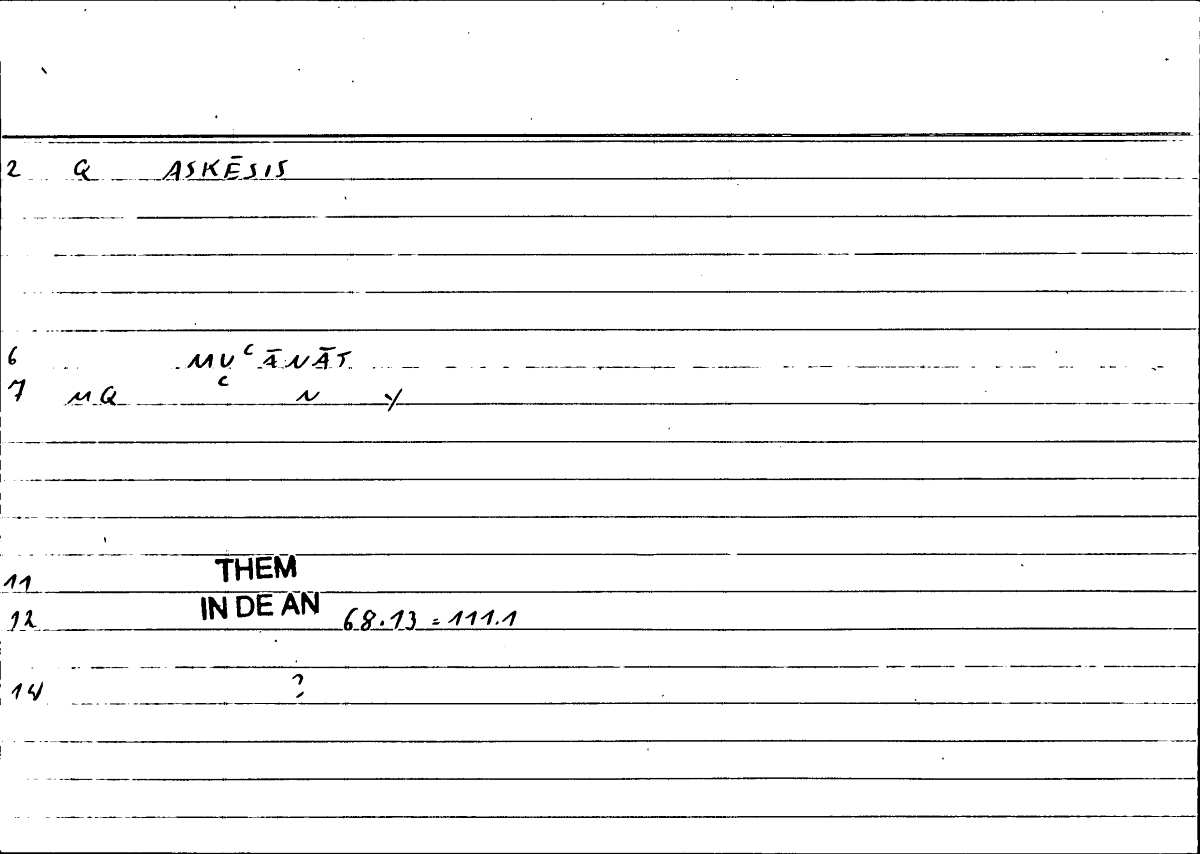 2 Q ASKĒSIS
6 MUʿĀNĀT
7 MQ ʿ N Y
11 THEM
12 IN DE AN 68.13 = 111.1
14 ?